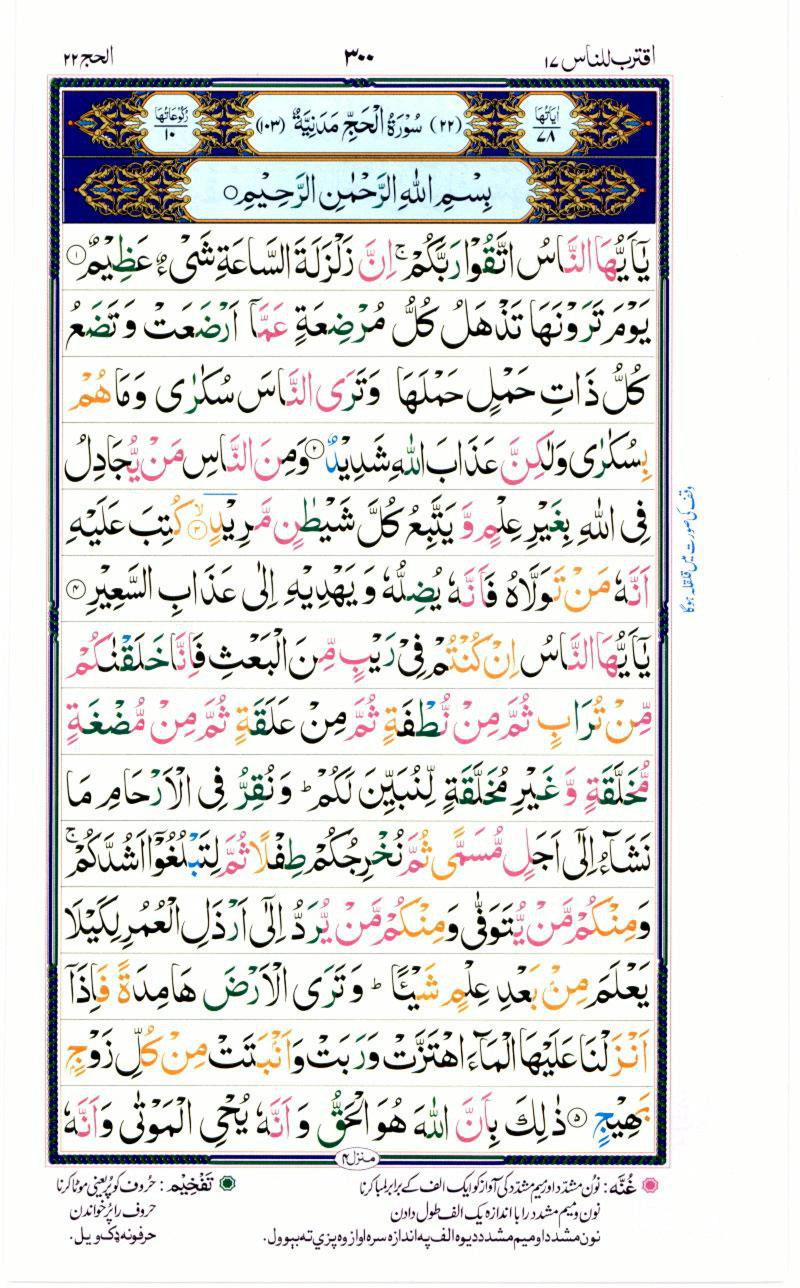 اقترب للناس ١٧
٣٠٠
الحج ٢٢
اٰیَاتُهَا ٧٨
(٢٢) سُوْرَةُ الْحَجِّ مَدَنِیَّةٌ (١٠٣)
رُکُوْعَاتُهَا ١٠
بِسْمِ اللّٰهِ الرَّحْمٰنِ الرَّحِیْمِ ○
یٰۤاَیُّهَا النَّاسُ اتَّقُوْا رَبَّكُمْ ۚ اِنَّ زَلْزَلَةَ السَّاعَةِ شَیْءٌ عَظِیْمٌ ۝١
یَوْمَ تَرَوْنَهَا تَذْهَلُ كُلُّ مُرْضِعَةٍ عَمَّاۤ اَرْضَعَتْ وَ تَضَعُ
كُلُّ ذَاتِ حَمْلٍ حَمْلَهَا وَ تَرَی النَّاسَ سُكٰرٰی وَ مَا هُمْ
بِسُكٰرٰی وَ لٰكِنَّ عَذَابَ اللّٰهِ شَدِیْدٌ ۝٢ وَ مِنَ النَّاسِ مَنْ یُّجَادِلُ
فِی اللّٰهِ بِغَیْرِ عِلْمٍ وَّ یَتَّبِعُ كُلَّ شَیْطٰنٍ مَّرِیْدٍ ۝٣ۙ كُتِبَ عَلَیْهِ
اَنَّهٗ مَنْ تَوَلَّاهُ فَاَنَّهٗ یُضِلُّهٗ وَ یَهْدِیْهِ اِلٰی عَذَابِ السَّعِیْرِ ۝٤
یٰۤاَیُّهَا النَّاسُ اِنْ كُنْتُمْ فِیْ رَیْبٍ مِّنَ الْبَعْثِ فَاِنَّا خَلَقْنٰكُمْ
مِّنْ تُرَابٍ ثُمَّ مِنْ نُّطْفَةٍ ثُمَّ مِنْ عَلَقَةٍ ثُمَّ مِنْ مُّضْغَةٍ
مُّخَلَّقَةٍ وَّ غَیْرِ مُخَلَّقَةٍ لِّنُبَیِّنَ لَكُمْ ؕ وَ نُقِرُّ فِی الْاَرْحَامِ مَا
نَشَآءُ اِلٰۤی اَجَلٍ مُّسَمًّی ثُمَّ نُخْرِجُكُمْ طِفْلًا ثُمَّ لِتَبْلُغُوْۤا اَشُدَّكُمْ ۚ
وَ مِنْكُمْ مَّنْ یُّتَوَفّٰی وَ مِنْكُمْ مَّنْ یُّرَدُّ اِلٰۤی اَرْذَلِ الْعُمُرِ لِكَیْلَا
یَعْلَمَ مِنْۢ بَعْدِ عِلْمٍ شَیْـًٔا ؕ وَ تَرَی الْاَرْضَ هَامِدَةً فَاِذَاۤ
اَنْزَلْنَا عَلَیْهَا الْمَآءَ اهْتَزَّتْ وَ رَبَتْ وَ اَنْۢبَتَتْ مِنْ كُلِّ زَوْجٍۭ
بَهِیْجٍ ۝٥ ذٰلِكَ بِاَنَّ اللّٰهَ هُوَ الْحَقُّ وَ اَنَّهٗ یُحْیِ الْمَوْتٰی وَ اَنَّهٗ
وقف کی صورت میں قلقلہ ہوگا
منزل ٤
غُنَّه: نون مشدّد اور میم مشدّد کی آواز کو ایک الف کے برابر لمبا کرنا
نون و میم مشدد را با اندازه یک الف طول دادن
نون مشدد او میم مشدد دیوه الف په اندازه سره اواز وه پزې ته بېوول.
تَفْخِیْم: حُروف کو پُر یعنی موٹا کرنا
حروف را پُر خواندن
حرفونه ډک ویل.